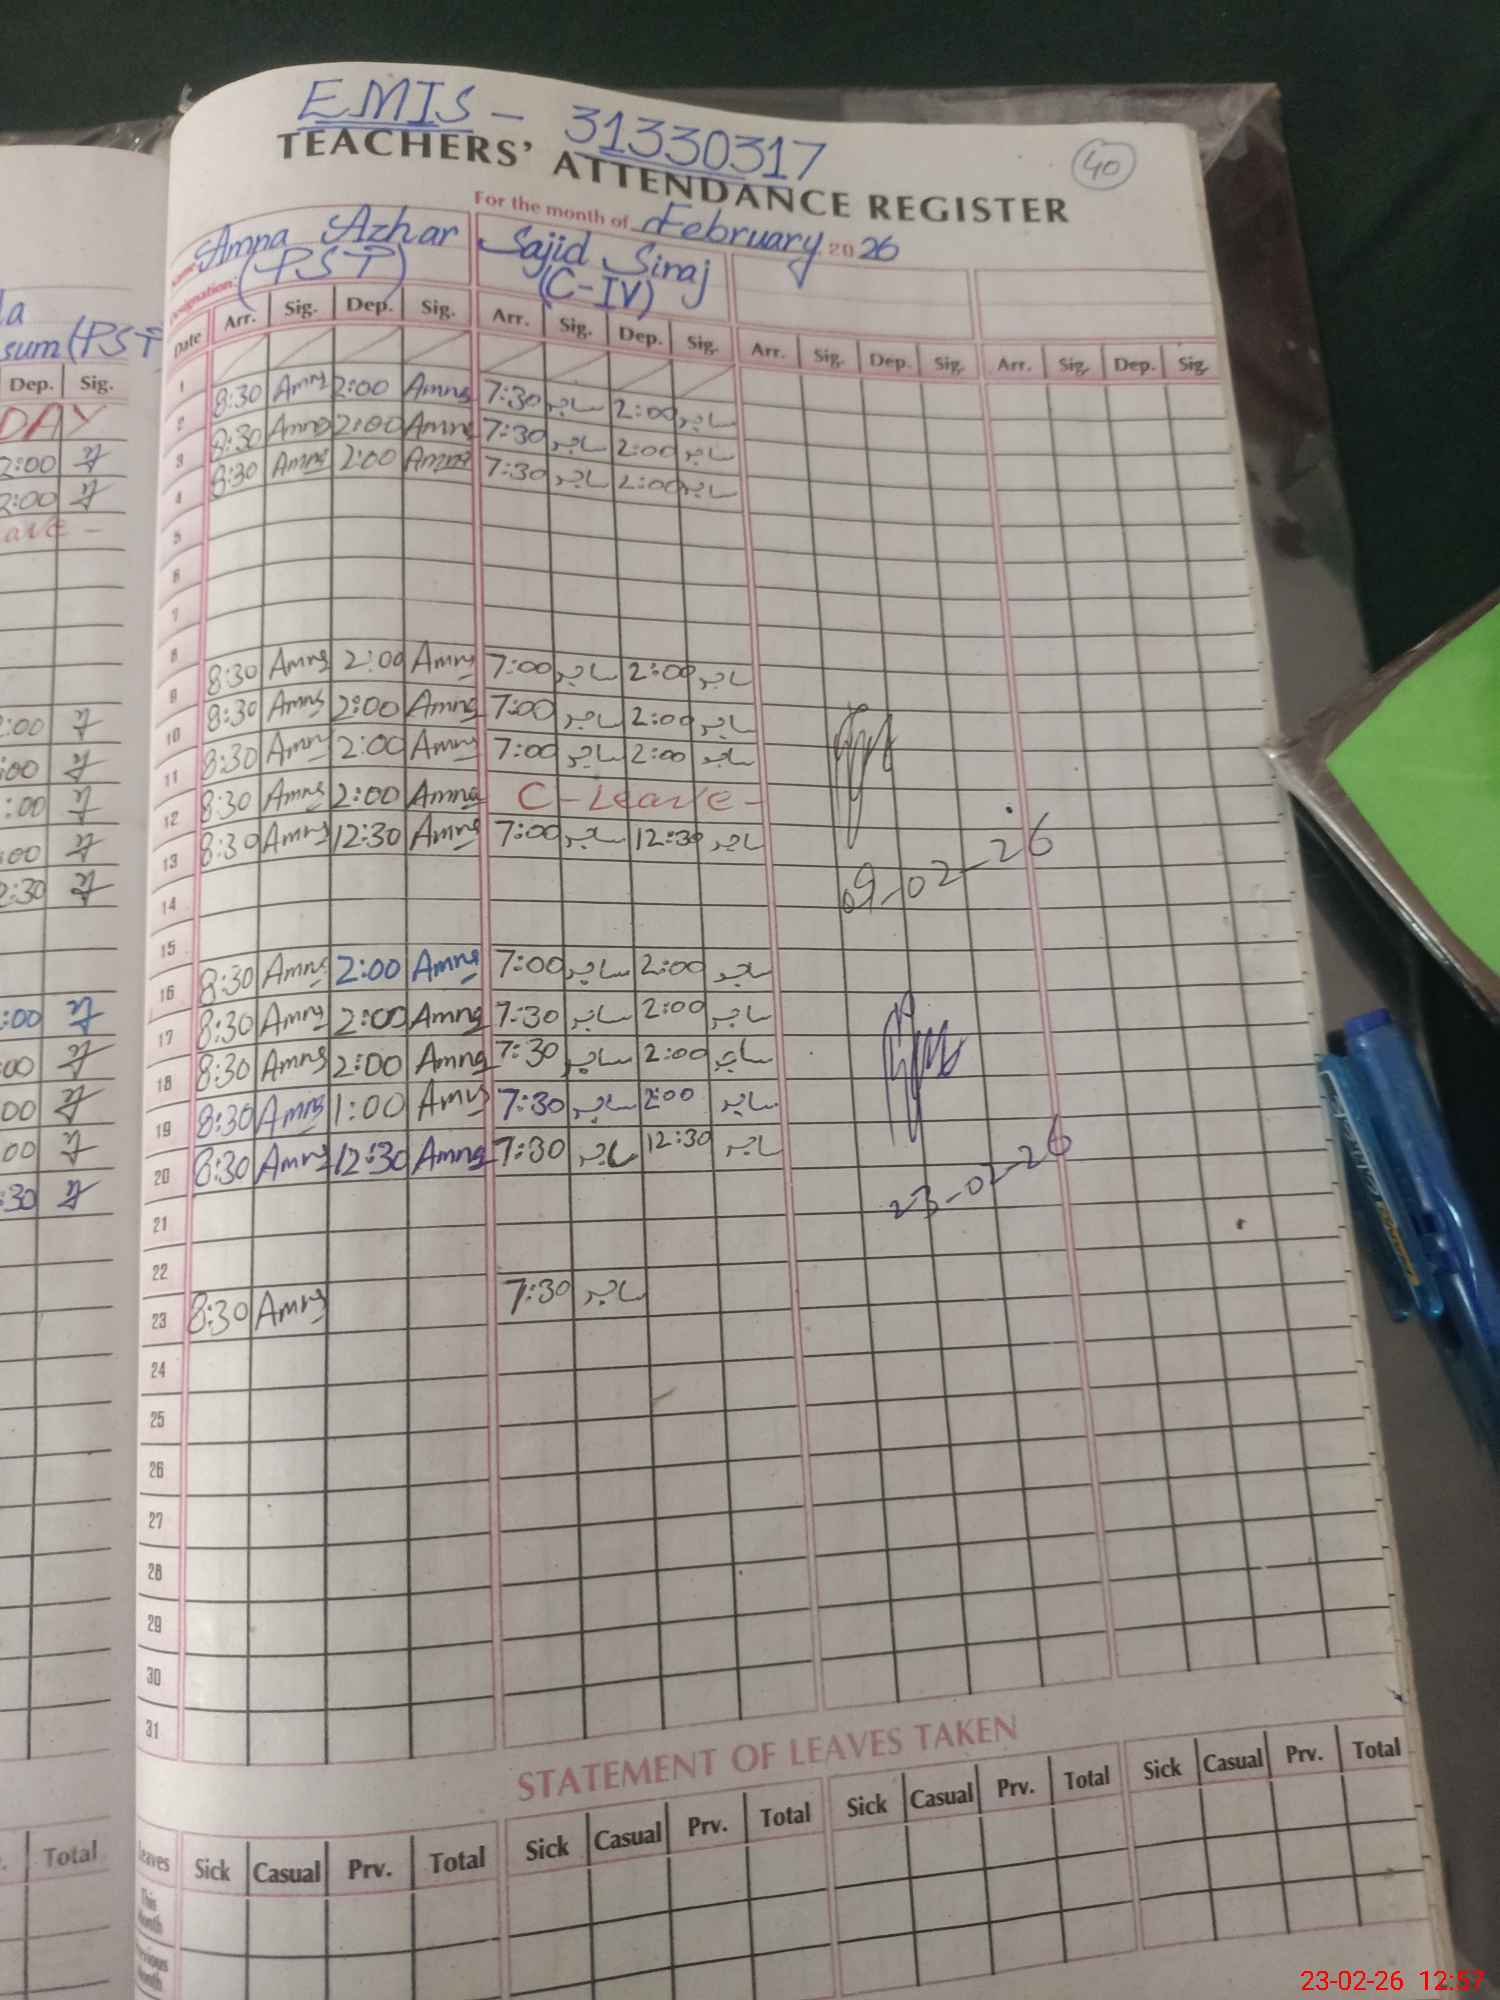 EMIS - 31330317
TEACHERS' ATTENDANCE REGISTER
40
For the month of February 2026
Amna Azhar Sajid Siraj
Designation: (PST) (C-IV)
la
sum (PST
Date Arr. Sig. Dep. Sig. Arr. Sig. Dep. Sig. Arr. Sig. Dep. Sig. Arr. Sig. Dep. Sig
Dep. Sig.
DAY
2:00
2:00
ave -
1
2 8:30 Amna 2:00 Amna 7:30 ساجد 2:00 ساجد
3 8:30 Amna 2:00 Amna 7:30 ساجد 2:00 ساجد
4 8:30 Amna 2:00 Amna 7:30 ساجد 2:00 ساجد
5
6
7
8
9 8:30 Amna 2:00 Amna 7:00 ساجد 2:00 ساجد
10 8:30 Amna 2:00 Amna 7:00 ساجد 2:00 ساجد
11 8:30 Amna 2:00 Amna 7:00 ساجد 2:00 ساجد
12 8:30 Amna 2:00 Amna C-Leave-
13 8:30 Amna 12:30 Amna 7:00 ساجد 12:30 ساجد
09-02-26
14
15
16 8:30 Amna 2:00 Amna 7:00 ساجد 2:00 ساجد
17 8:30 Amna 2:00 Amna 7:30 ساجد 2:00 ساجد
18 8:30 Amna 2:00 Amna 7:30 ساجد 2:00 ساجد
19 8:30 Amna 1:00 Amna 7:30 ساجد 2:00 ساجد
20 8:30 Amna 12:30 Amna 7:30 ساجد 12:30 ساجد
23-02-26
21
22
23 8:30 Amna 7:30 ساجد
24
25
26
27
28
29
30
31
STATEMENT OF LEAVES TAKEN
Total
Leaves Sick Casual Prv. Total Sick Casual Prv. Total Sick Casual Prv. Total Sick Casual Prv. Total
This Month
Previous Month
23-02-26 12:57